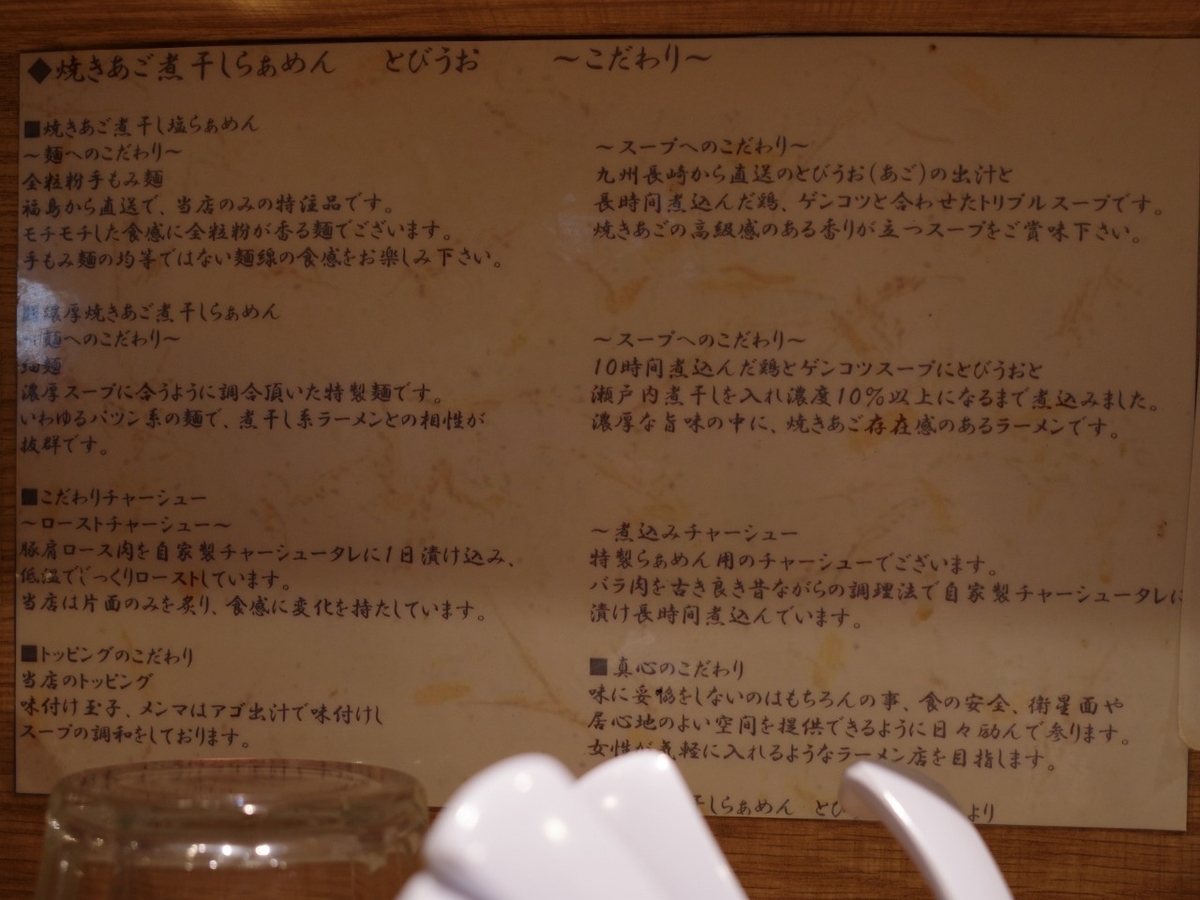 ◆焼きあご煮干しらぁめん　とびうお　～こだわり～
■焼きあご煮干し塩らぁめん
～麺へのこだわり～
全粒粉手もみ麺
福島から直送で、当店のみの特注品です。
モチモチした食感に全粒粉が香る麺でございます。
手もみ麺の均等ではない麺線の食感をお楽しみ下さい。
～スープへのこだわり～
九州長崎から直送のとびうお(あご)の出汁と
長時間煮込んだ鶏、ゲンコツと合わせたトリプルスープです。
焼きあごの高級感のある香りが立つスープをご賞味下さい。
■濃厚焼きあご煮干しらぁめん
～麺へのこだわり～
細麺
濃厚スープに合うように調合頂いた特製麺です。
いわゆるパツン系の麺で、煮干し系ラーメンとの相性が
抜群です。
～スープへのこだわり～
10時間煮込んだ鶏とゲンコツスープにとびうおと
瀬戸内煮干しを入れ濃度10％以上になるまで煮込みました。
濃厚な旨味の中に、焼きあご存在感のあるラーメンです。
■こだわりチャーシュー
～ローストチャーシュー～
豚肩ロース肉を自家製チャーシュータレに1日漬け込み、
低温でじっくりローストしています。
当店は片面のみを炙り、食感に変化を持たしています。
～煮込みチャーシュー
特製らぁめん用のチャーシューでございます。
バラ肉を古き良き昔ながらの調理法で自家製チャーシュータレに
漬け長時間煮込んでいます。
■トッピングのこだわり
当店のトッピング
味付け玉子、メンマはアゴ出汁で味付けし
スープの調和をしております。
■真心のこだわり
味に妥協をしないのはもちろんの事、食の安全、衛星面や
居心地のよい空間を提供できるように日々励んで参ります。
女性が気軽に入れるようなラーメン店を目指します。
干しらぁめん　とび　より